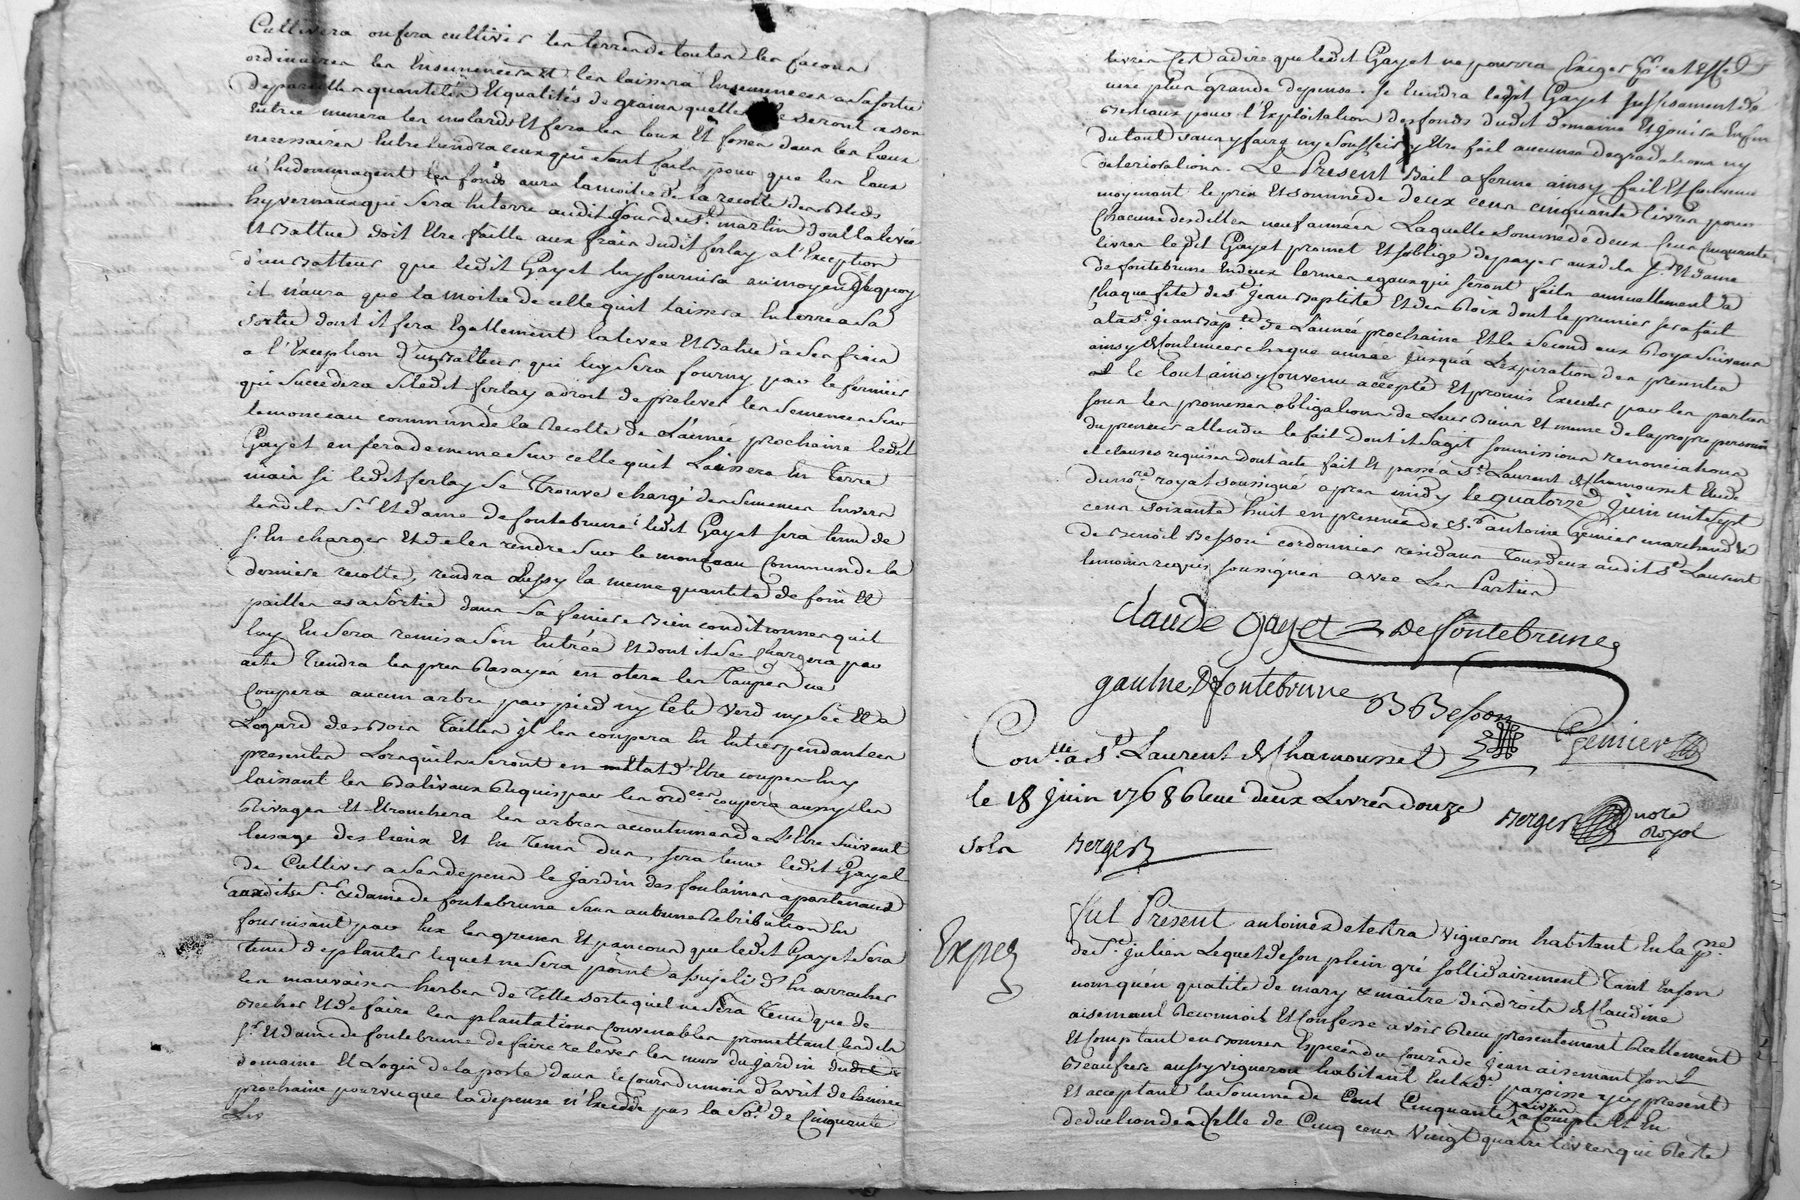 Cultivera ou fera cultiver les terres de toutes les façons
ordinaires les ensemencera et les laissera ensemencées a sa sortie
de pareilles quantités et qualités de grains quelles seront a son
entrée minera les molards et fera les et fosses dans les lieux
necessaires entretiendra ceux qui sont faits pour que les eaux
n'endommagent les fonds aura la moitié de la recolte des bleds
hyvernaux qui sera en terre audit jour de st. martin dont la levée
et battue doit etre faitte aux frais dudit forlay a l'exception
d'un batteur que ledit Gayet luy fournira au moyen de quoy
il n'aura que la moitié de celle qu'il laissera en terre a sa
sortie dont il fera egallement la levée et battue à ses frais
a l'exception d'un batteur qui luy sera fourny par le fermier
qui succedera si ledit forlay a droit de prelever les semences sur
le monceau commun de la recolte de l'année prochaine ledit
Gayet en fera de meme sur celle qu'il laissera en terre
mais si ledit forlay se trouve chargé des semences envers
lesdits sr. et dame de fontebrune ledit Gayet sera tenu de
s'en charger et de les rendre sur le monceau commun de la
derniere recolte, rendra aussy la meme quantité de foin et
pailles a sa sortie dans sa feniere bien conditionnes qu'il
luy en sera remis a son entrée et dont il se chargera par
acte tiendra les pres rasayés en otera les taupes ne
coupera aucun arbre par pied ny tete verd ny sec et a
l'egard des bois taillis il les coupera en entier pendant ces
presentes lorsqu'ils seront en etat d'etre coupes en y
laissant les baliveaux requis par les ordces. coupera aussy les
rivages et etronchera les arbres accoutumes de l'etre suivant
l'usage des lieux et en tems du, sera tenu ledit Gayet
de cultiver a ses depens le jardin des foulaines apartenant
auxdits sr. et dame de fontebrune sans aucune retribution en
fournissant par eux les graines et que ledit Gayet sera
tenu de planter lequel ne sera point assujeti d'en arracher
les mauvaises herbes de telle sorte quil ne sera tenu que de
becher et de faire les plantations convenables promettant lesdits
sr. et dame de fontebrune de faire relever les murs du jardin dudit
domaine et logis de la poste dans le courant du mois d'avril de l'année
prochaine pourvu que la depense n'excedde pas la so.e de cinquante
livres c'est adire que ledit Gayet ne pourra exiger pr. cet effet
une plus grande depense. Se tiendra ledit Gayet suffisament de
bestiaux pour l'exploitation des fonds dudit domaine et jouira enfin
du tout sans y faire ny souffrir y etre fait aucunes degradations ny
deteriorations. Le Present Bail a ferme ainsy fait et convenu
moyenant le prix et somme de deux cens cinquante livres pour
chacune desdittes neuf années Laquelle somme de deux cens cinquante
livres ledit Gayet promet et s'oblige de payer auxdits sr. et dame
de fontebrune en deux termes egaux qui seront faits annuellement de
chaque fete de st. jean baptiste et des Rois dont le premier sera fait
a la st. jean bap.te de l'année prochaine et le second aux Roys suivans
ainsy continuer chaque année jusqu'a l'expiration des presentes
le tout ainsy convenu accepté et promis executer par les parties
sous les promesses obligations de leurs biens et meme de la propre personne
du preneur attendu le fait dont il s'agit soumissions renonciations
et clauses requises dont acte fait et passé à st. Laurent de Chamousset Etude
du nore. royal soussigné apres midy le quatorze juin mil sept
cens soixante huit en presence de sr. antoine Genier marchand et
de Benoit Besson cordonnier residans tous deux audit st. Laurent
temoins requis soussignes avec les Parties
claude gayet De fontebrune
gaulne De fontebrune
B Besson
Genier
Con.lle a st. Laurent de Chamousset
le 18 juin 1768 Recu deux Livres douze
sols Berger
Berger note Royal
Exped
fut Present antoine detestra vigneron habitant en la psse.
de st. julien Lequel de son plein gré sollidairement tant en son
nom qu'en qualité de mary et maitre des droits de Claudine
aisemant Reconnoit et confesse avoir Recu presentement Reellement
et comptant en bonnes especes du cours de jean aisemant son
beaufrere aussy vigneron habitant en lad. paroisse icy present
et acceptant la somme de Cent Cinquante livres acompte et en
deduction de celle de cinq cens vingt quatre livres qui Reste